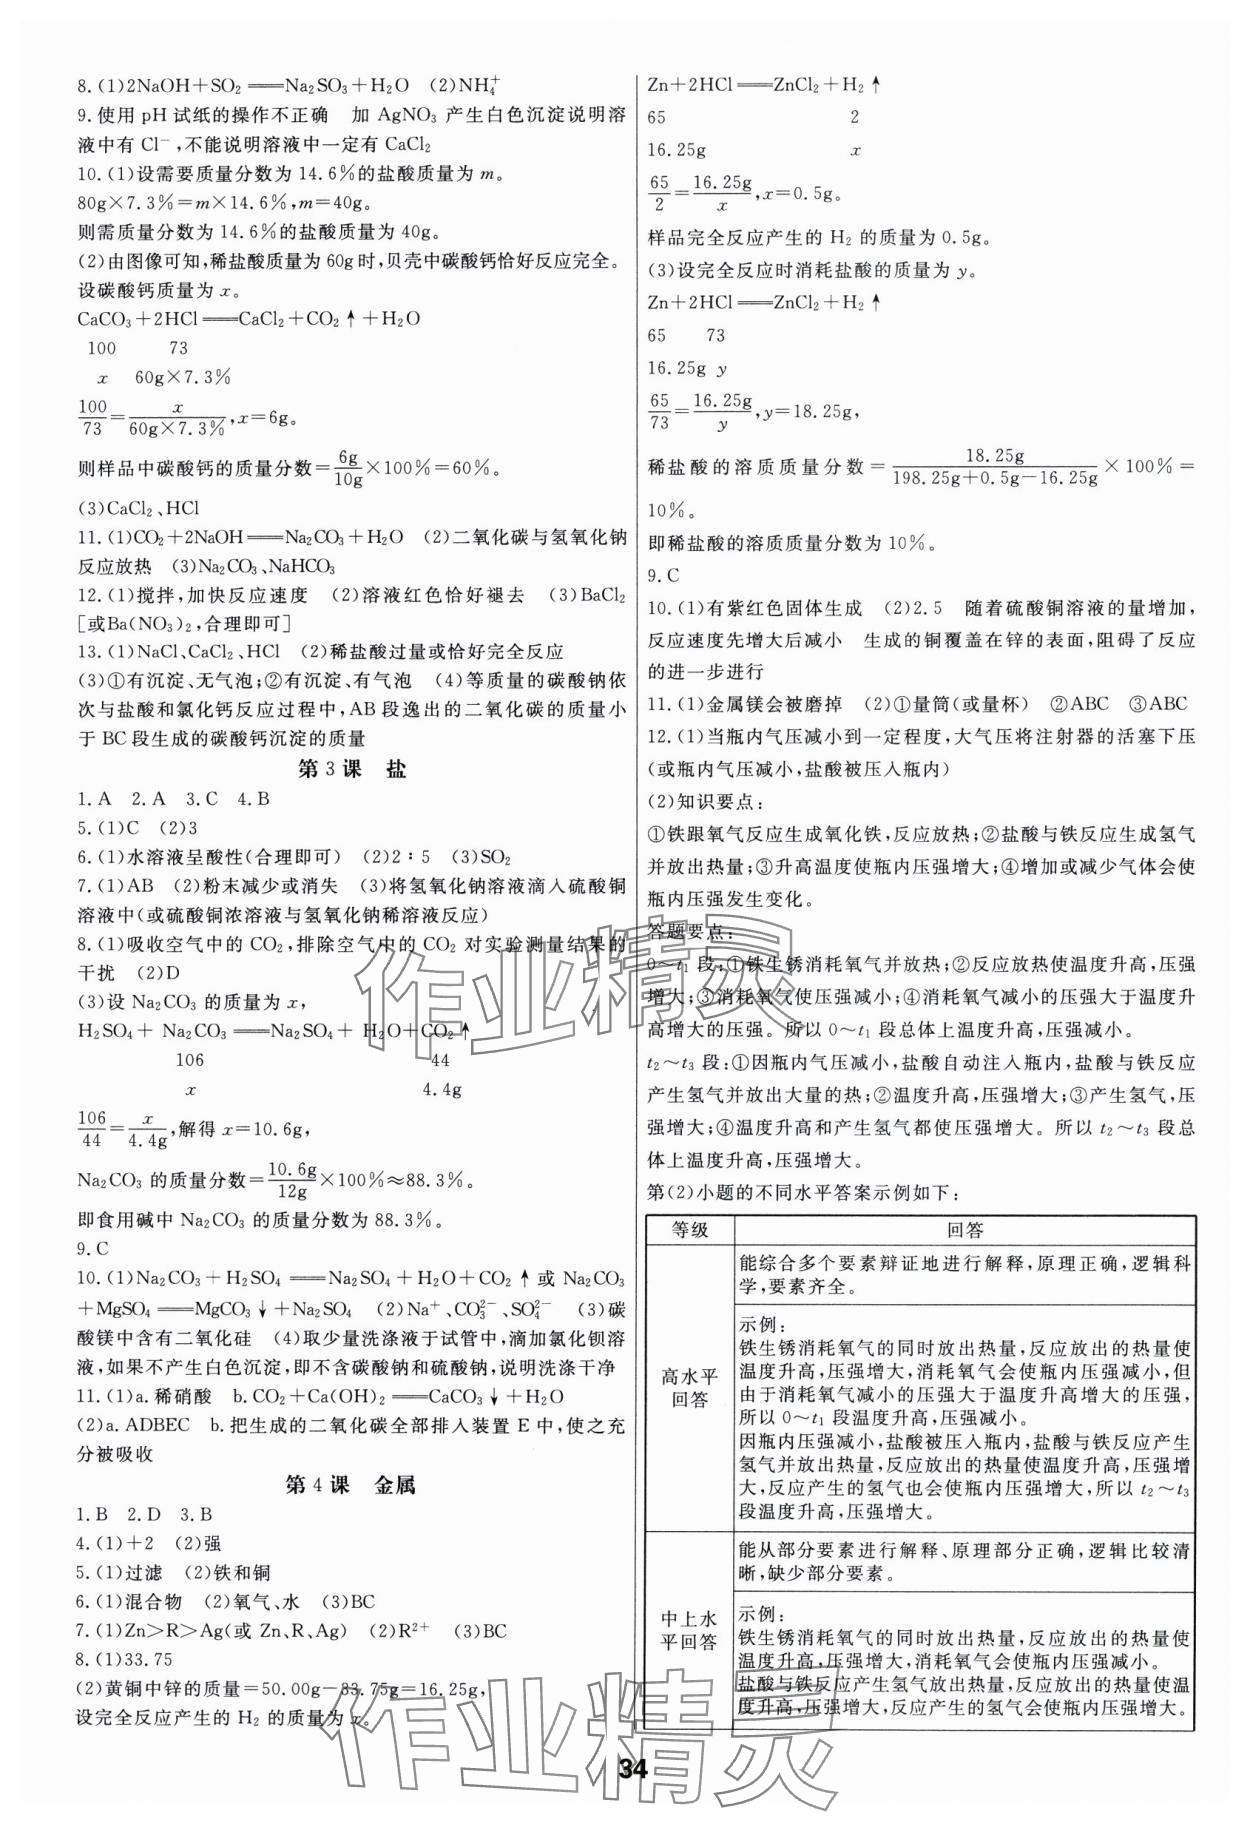 8.(1)2NaOH+SO₂══Na₂SO₃+H₂O　(2)NH₄⁺
9.使用pH试纸的操作不正确　加AgNO₃产生白色沉淀说明溶
液中有Cl⁻,不能说明溶液中一定有CaCl₂
10.(1)设需要质量分数为14.6%的盐酸质量为m。
80g×7.3%=m×14.6%,m=40g。
则需质量分数为14.6%的盐酸质量为40g。
(2)由图像可知,稀盐酸质量为60g时,贝壳中碳酸钙恰好反应完全。
设碳酸钙质量为x。
CaCO₃+2HCl══CaCl₂+CO₂↑+H₂O
100　73
x　60g×7.3%
100/73=x/(60g×7.3%),x=6g。
则样品中碳酸钙的质量分数=6g/10g×100%=60%。
(3)CaCl₂、HCl
11.(1)CO₂+2NaOH══Na₂CO₃+H₂O　(2)二氧化碳与氢氧化钠
反应放热　(3)Na₂CO₃、NaHCO₃
12.(1)搅拌,加快反应速度　(2)溶液红色恰好褪去　(3)BaCl₂
[或Ba(NO₃)₂,合理即可]
13.(1)NaCl、CaCl₂、HCl　(2)稀盐酸过量或恰好完全反应
(3)①有沉淀、无气泡;②有沉淀、有气泡　(4)等质量的碳酸钠依
次与盐酸和氯化钙反应过程中,AB段逸出的二氧化碳的质量小
于BC段生成的碳酸钙沉淀的质量
第3课　盐
1.A　2.A　3.C　4.B
5.(1)C　(2)3
6.(1)水溶液呈酸性(合理即可)　(2)2∶5　(3)SO₂
7.(1)AB　(2)粉末减少或消失　(3)将氢氧化钠溶液滴入硫酸铜
溶液中(或硫酸铜浓溶液与氢氧化钠稀溶液反应)
8.(1)吸收空气中的CO₂,排除空气中的CO₂对实验测量结果的
干扰　(2)D
(3)设Na₂CO₃的质量为x,
H₂SO₄+Na₂CO₃══Na₂SO₄+H₂O+CO₂↑
106　44
x　4.4g
106/44=x/4.4g,解得x=10.6g,
Na₂CO₃的质量分数=10.6g/12g×100%≈88.3%。
即食用碱中Na₂CO₃的质量分数为88.3%。
9.C
10.(1)Na₂CO₃+H₂SO₄══Na₂SO₄+H₂O+CO₂↑或Na₂CO₃
+MgSO₄══MgCO₃↓+Na₂SO₄　(2)Na⁺、CO₃²⁻、SO₄²⁻　(3)碳
酸镁中含有二氧化硅　(4)取少量洗涤液于试管中,滴加氯化钡溶
液,如果不产生白色沉淀,即不含碳酸钠和硫酸钠,说明洗涤干净
11.(1)a.稀硝酸　b.CO₂+Ca(OH)₂══CaCO₃↓+H₂O
(2)a.ADBEC　b.把生成的二氧化碳全部排入装置E中,使之充
分被吸收
第4课　金属
1.B　2.D　3.B
4.(1)+2　(2)强
5.(1)过滤　(2)铁和铜
6.(1)混合物　(2)氧气、水　(3)BC
7.(1)Zn>R>Ag(或Zn、R、Ag)　(2)R²⁺　(3)BC
8.(1)33.75
(2)黄铜中锌的质量=50.00g−33.75g=16.25g,
设完全反应产生的H₂的质量为x。
Zn+2HCl══ZnCl₂+H₂↑
65　2
16.25g　x
65/2=16.25g/x,x=0.5g。
样品完全反应产生的H₂的质量为0.5g。
(3)设完全反应时消耗盐酸的质量为y。
Zn+2HCl══ZnCl₂+H₂↑
65　73
16.25g　y
65/73=16.25g/y,y=18.25g,
稀盐酸的溶质质量分数=18.25g/(198.25g+0.5g−16.25g)×100%=
10%。
即稀盐酸的溶质质量分数为10%。
9.C
10.(1)有紫红色固体生成　(2)2.5　随着硫酸铜溶液的量增加,
反应速度先增大后减小　生成的铜覆盖在锌的表面,阻碍了反应
的进一步进行
11.(1)金属镁会被磨掉　(2)①量筒(或量杯)　②ABC　③ABC
12.(1)当瓶内气压减小到一定程度,大气压将注射器的活塞下压
(或瓶内气压减小,盐酸被压入瓶内)
(2)知识要点:
①铁跟氧气反应生成氧化铁,反应放热;②盐酸与铁反应生成氢气
并放出热量;③升高温度使瓶内压强增大;④增加或减少气体会使
瓶内压强发生变化。
答题要点:
0～t₁段:①铁生锈消耗氧气并放热;②反应放热使温度升高,压强
增大;③消耗氧气使压强减小;④消耗氧气减小的压强大于温度升
高增大的压强。所以0～t₁段总体上温度升高,压强减小。
t₂～t₃段:①因瓶内气压减小,盐酸自动注入瓶内,盐酸与铁反应
产生氢气并放出大量的热;②温度升高,压强增大;③产生氢气,压
强增大;④温度升高和产生氢气都使压强增大。所以t₂～t₃段总
体上温度升高,压强增大。
第(2)小题的不同水平答案示例如下:
等级　回答
高水平
回答
能综合多个要素辩证地进行解释,原理正确,逻辑科
学,要素齐全。
示例:
铁生锈消耗氧气的同时放出热量,反应放出的热量使
温度升高,压强增大,消耗氧气会使瓶内压强减小,但
由于消耗氧气减小的压强大于温度升高增大的压强,
所以0～t₁段温度升高,压强减小。
因瓶内压强减小,盐酸被压入瓶内,盐酸与铁反应产生
氢气并放出热量,反应放出的热量使温度升高,压强增
大,反应产生的氢气也会使瓶内压强增大,所以t₂～t₃
段温度升高,压强增大。
中上水
平回答
能从部分要素进行解释、原理部分正确,逻辑比较清
晰,缺少部分要素。
示例:
铁生锈消耗氧气的同时放出热量,反应放出的热量使
温度升高,压强增大,消耗氧气会使瓶内压强减小。
盐酸与铁反应产生氢气放出热量,反应放出的热量使温
度升高,压强增大,反应产生的氢气会使瓶内压强增大。
作业精灵
作业精灵
34